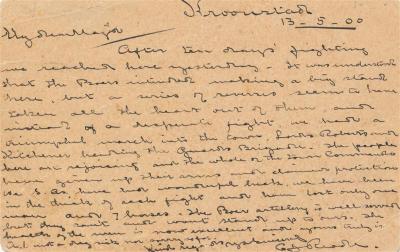 Kroonstad
13-5-00
My dear Major
After ten days' fighting
we reached here yesterday. It was understood
that the Boers intended making a big stand
here, but a series of reverses seem to have
taken all the heart out of them and
instead of a desperate fight we had a
triumphal march into the town Lords Roberts and
Kitchener heading the Guards Brigade. The people
here are rejoicing and the whole of the Town Commando
have given up their arms and claimed protection
We S.A. have had wonderful luck, we have been
in the thick of each fight and have lost only one
man and 7 horses. The Boer artillery is well served
but they can't and won't stand up to ours. The
health of the men is now excellent and yours truly is